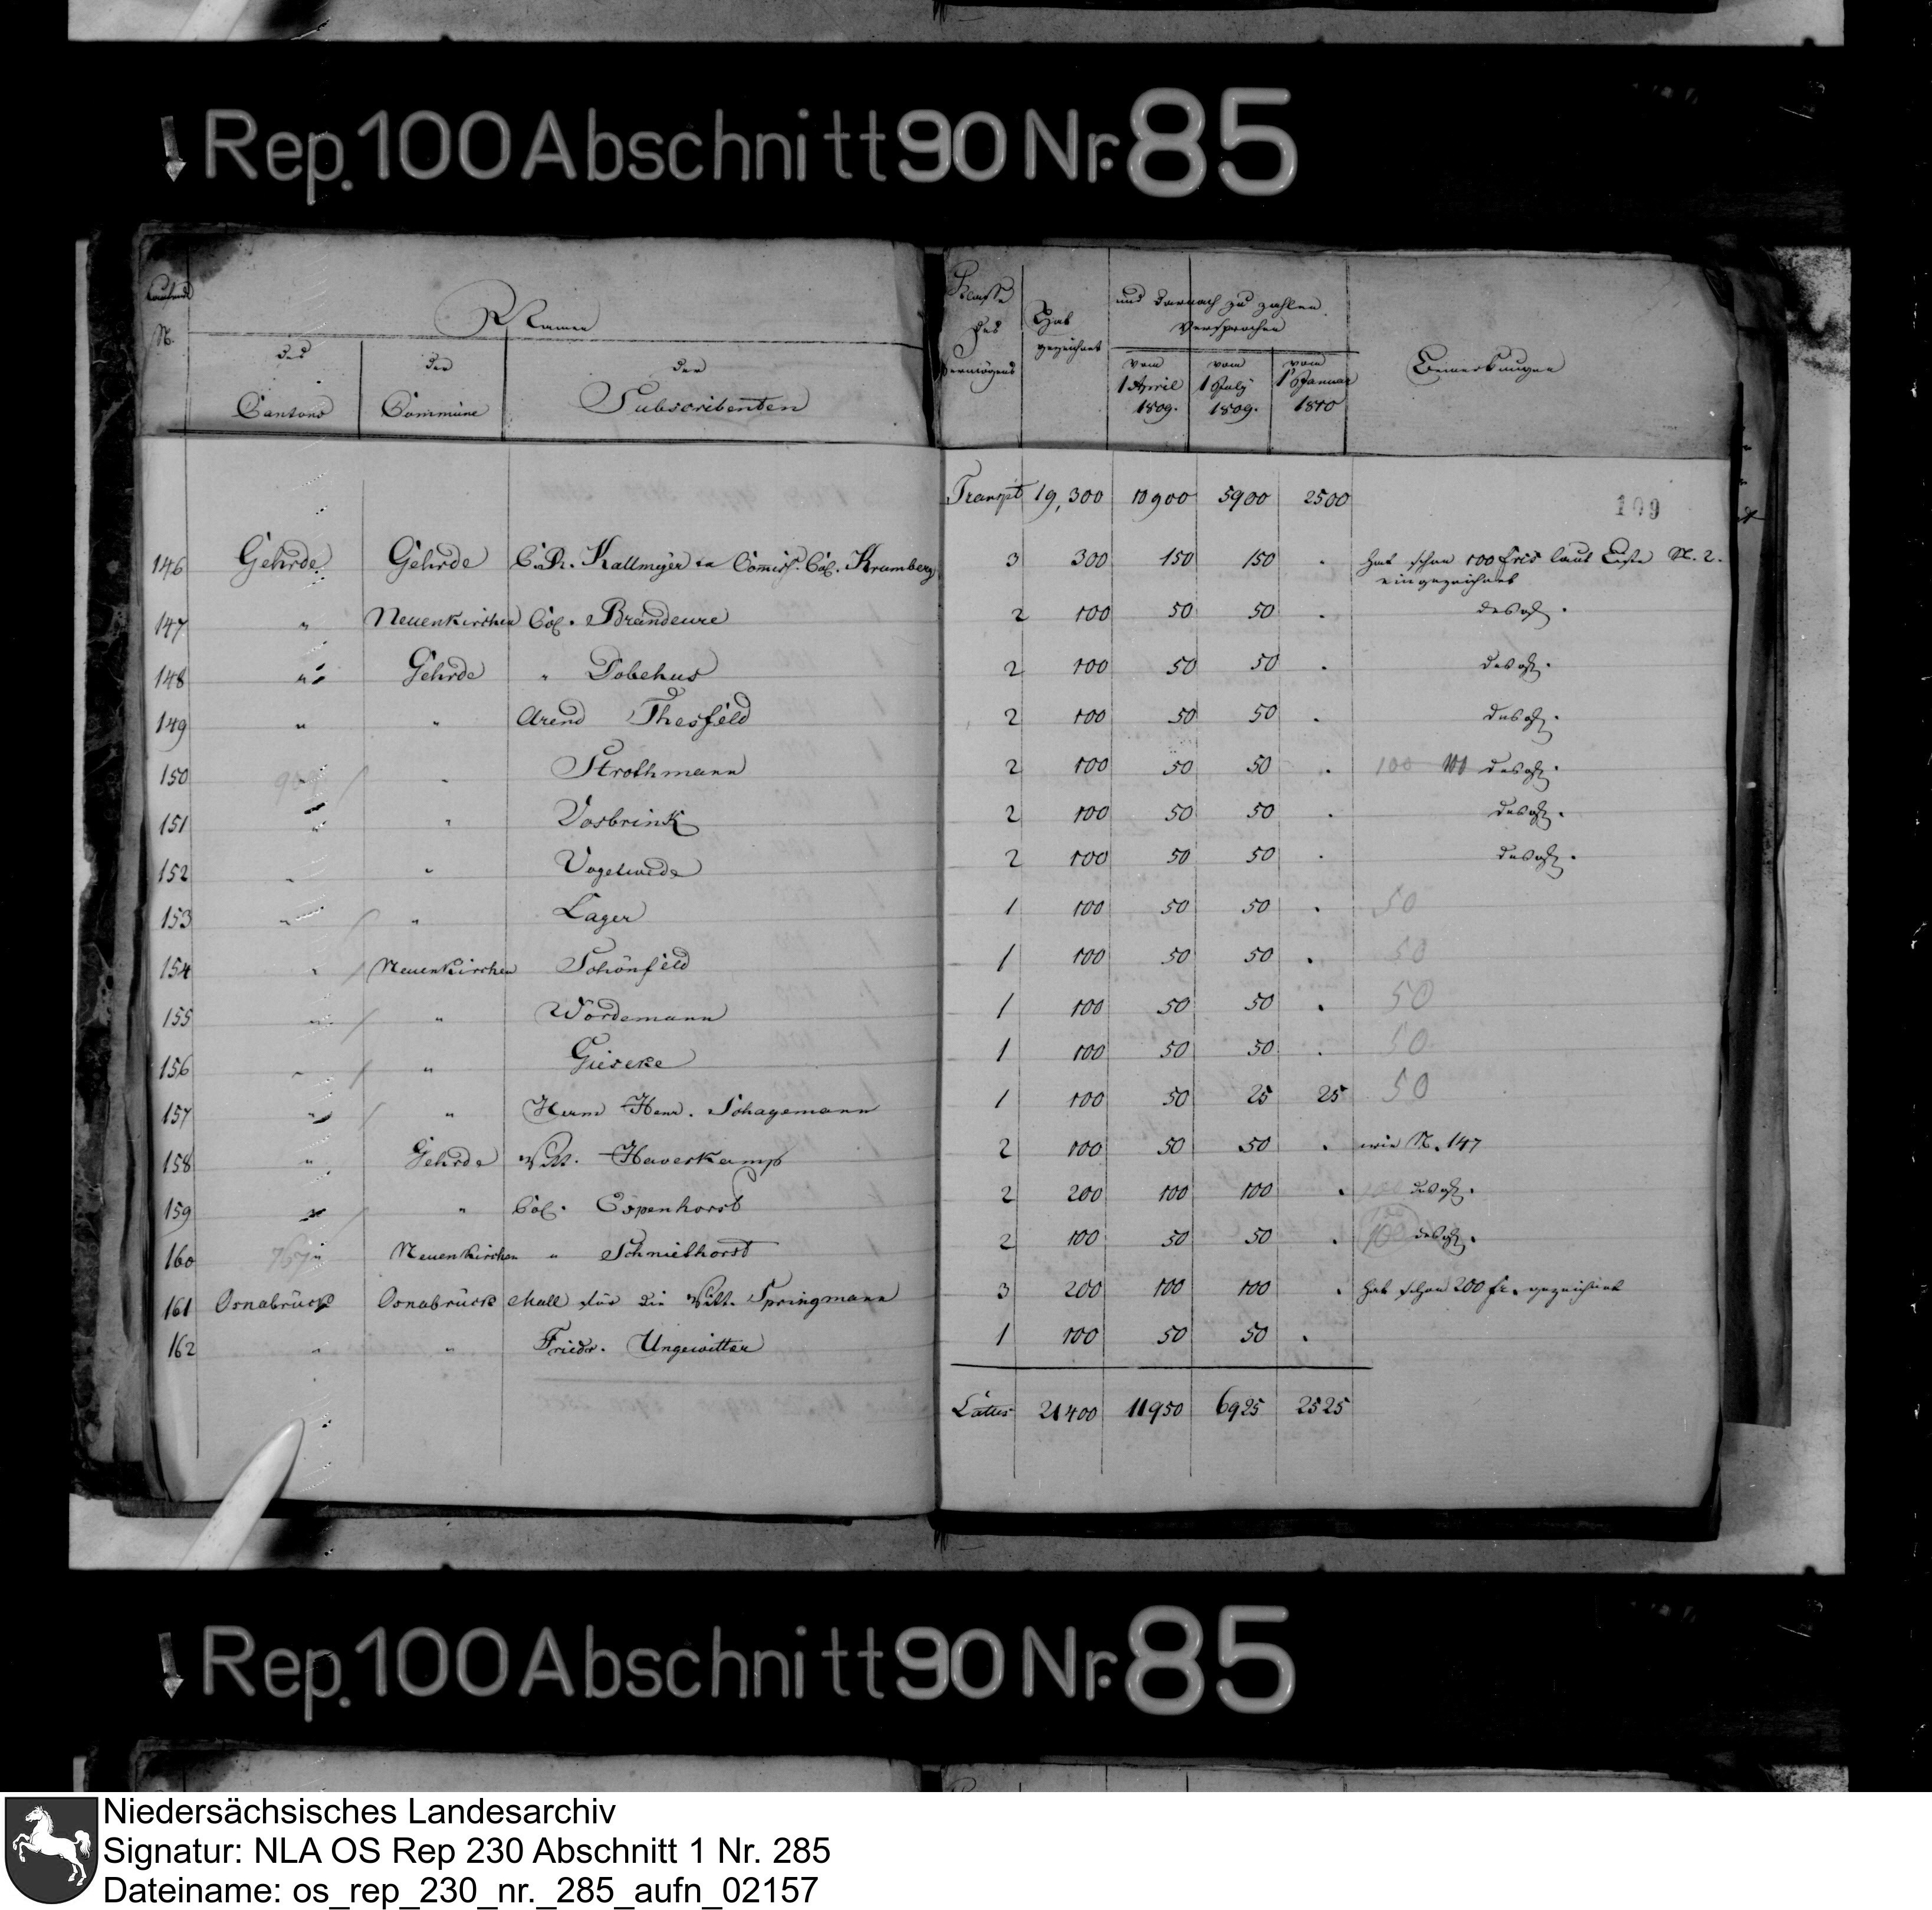 Rep. 100 Abschnitt 90 Nr. 85
Laufende N. Namen Klasse des Vermögens Hat gezeichnet und darnach zu zahlen versprochen Bemerkungen
des Cantons der Commüne der Subscribenten vom 1 April 1809. vom 1 July 1809. vom 1 Januar 1810
109
Transpt 19,300 10900 5900 2500
146 Gehrde Gehrde Kallmeyer Col. Krumberg 3 300 150 150 . hat schon 100 frcs laut Liste N. 2. eingezeichnet
147 " Neuenkirchen Col. Brandewre 2 100 50 50 . desgl.
148 " Gehrde " Dobehus 2 100 50 50 . desgl.
149 " " Arend Thesfeld 2 100 50 50 . desgl.
150 " Strothmann 2 100 50 50 . 100 100 desgl.
151 " " Vosbrink 2 100 50 50 . desgl.
152 " " Vogelwede 2 100 50 50 . desgl.
153 " " Lager 1 100 50 50 . 50
154 " Neuenkirchen Schönfeld 1 100 50 50 . 50
155 " " Wördemann 1 100 50 50 . 50
156 " " Gieseke 1 100 50 50 . 50
157 " " Herm Henr. Schagemann 1 100 50 25 25 50
158 " Gehrde Witt. Haverkamp 2 100 50 50 . wie N. 147
159 " " Col. Espenhorst 2 200 100 100 . 100 desgl.
160 " Neuenkirchen " Schmiethorst 2 100 50 50 . 100 desgl.
161 Osnabrück Osnabrück Mall für die Witt. Springmann 3 200 100 100 . hat schon 200 fr. gezeichnet
162 " " Friedr. Ungewitter 1 100 50 50 .
Latus 21400 11950 6925 2525
Rep. 100 Abschnitt 90 Nr. 85
Niedersächsisches Landesarchiv
Signatur: NLA OS Rep 230 Abschnitt 1 Nr. 285
Dateiname: os_rep_230_nr._285_aufn_02157